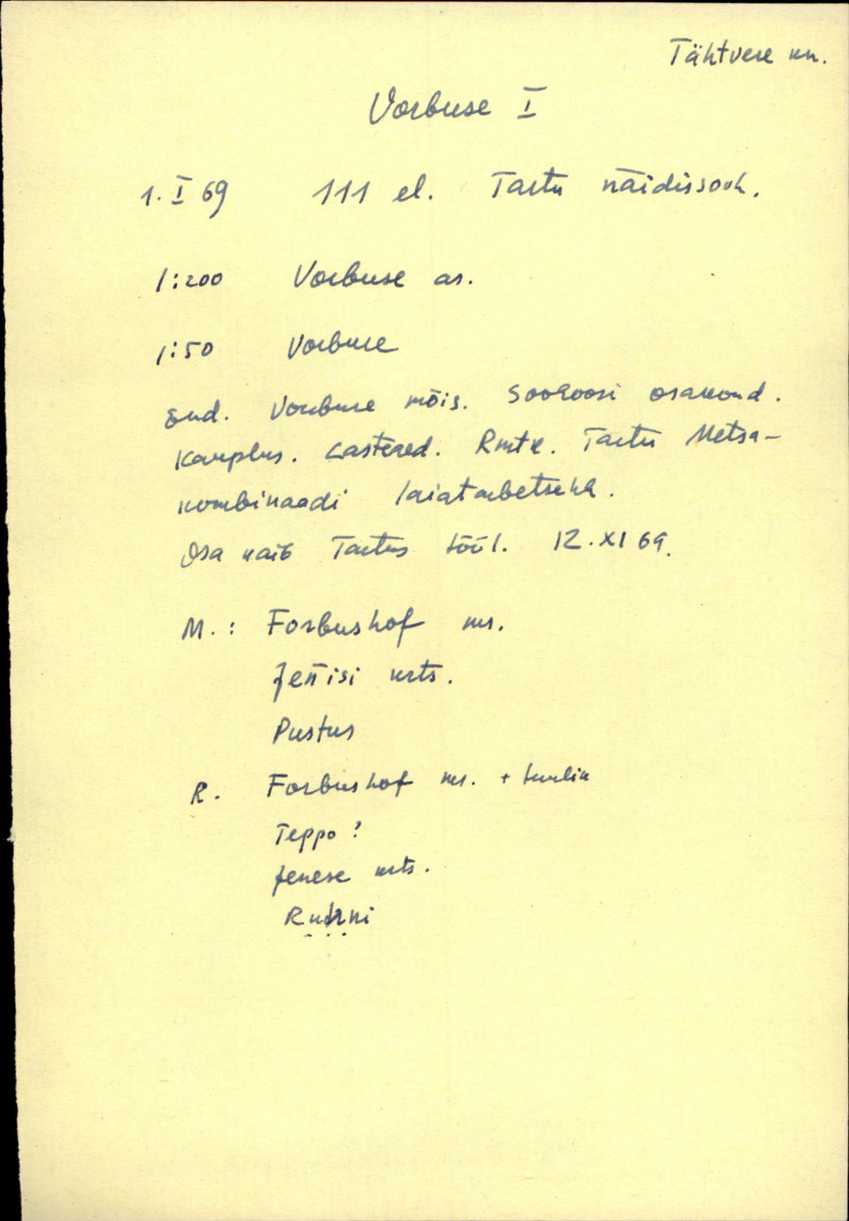 Tähtvere kn.
Vorbuse I
1. I 69 111 el. Tartu näidissovh.
1:200 Vorbuse as.
1:50 Vorbuse
End. Vorbuse mõis. Sovhoosi osakond.
Kauplus. Lastaed. Rmtk. Tartu Metsa-
kombinaadi laiatarbetsehh.
Osa käib Tartus tööl. 12.XI 69.
M.: Forbushof ms.
Jenisi krts.
Pustus
R. Forbushof ms. + tuulik
Teppo?
Jenese krts.